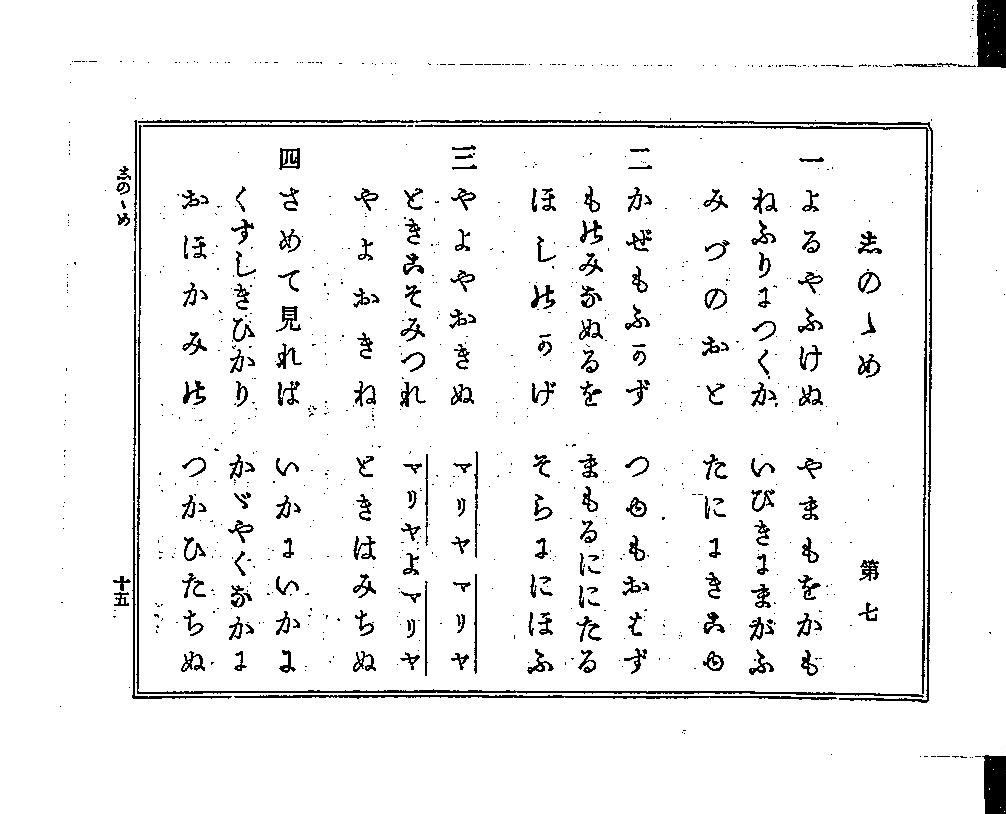 志のゝめ
第七
一 よるやふけぬ やまもをかも
ねふりにつくか いびきにまがふ
みづのおと たににきこゆ
二 かぜもふかず つゆもおちず
ものみなぬるを まもるににたる
ほしのかげ そらににほふ
三 やよやおきぬ マリヤ マリヤ
ときこそみつれ マリヤよマリヤ
やよおきね ときはみちぬ
四 さめて見れば いかにいかに
くすしきひかり かゞやくなかに
おほかみの つかひたちぬ
志のゝめ
十五